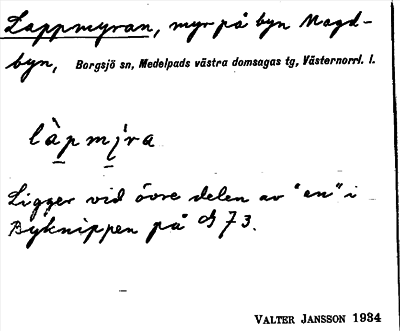 Lappmyran, myr på byn Nagd-
byn, Borgsjö sn, Medelpads västra domsagas tg, Västernorrl. l.
làpmy̨ra
Ligger vid övre delen av "en" i
Byknippen på 73.
VALTER JANSSON 1934